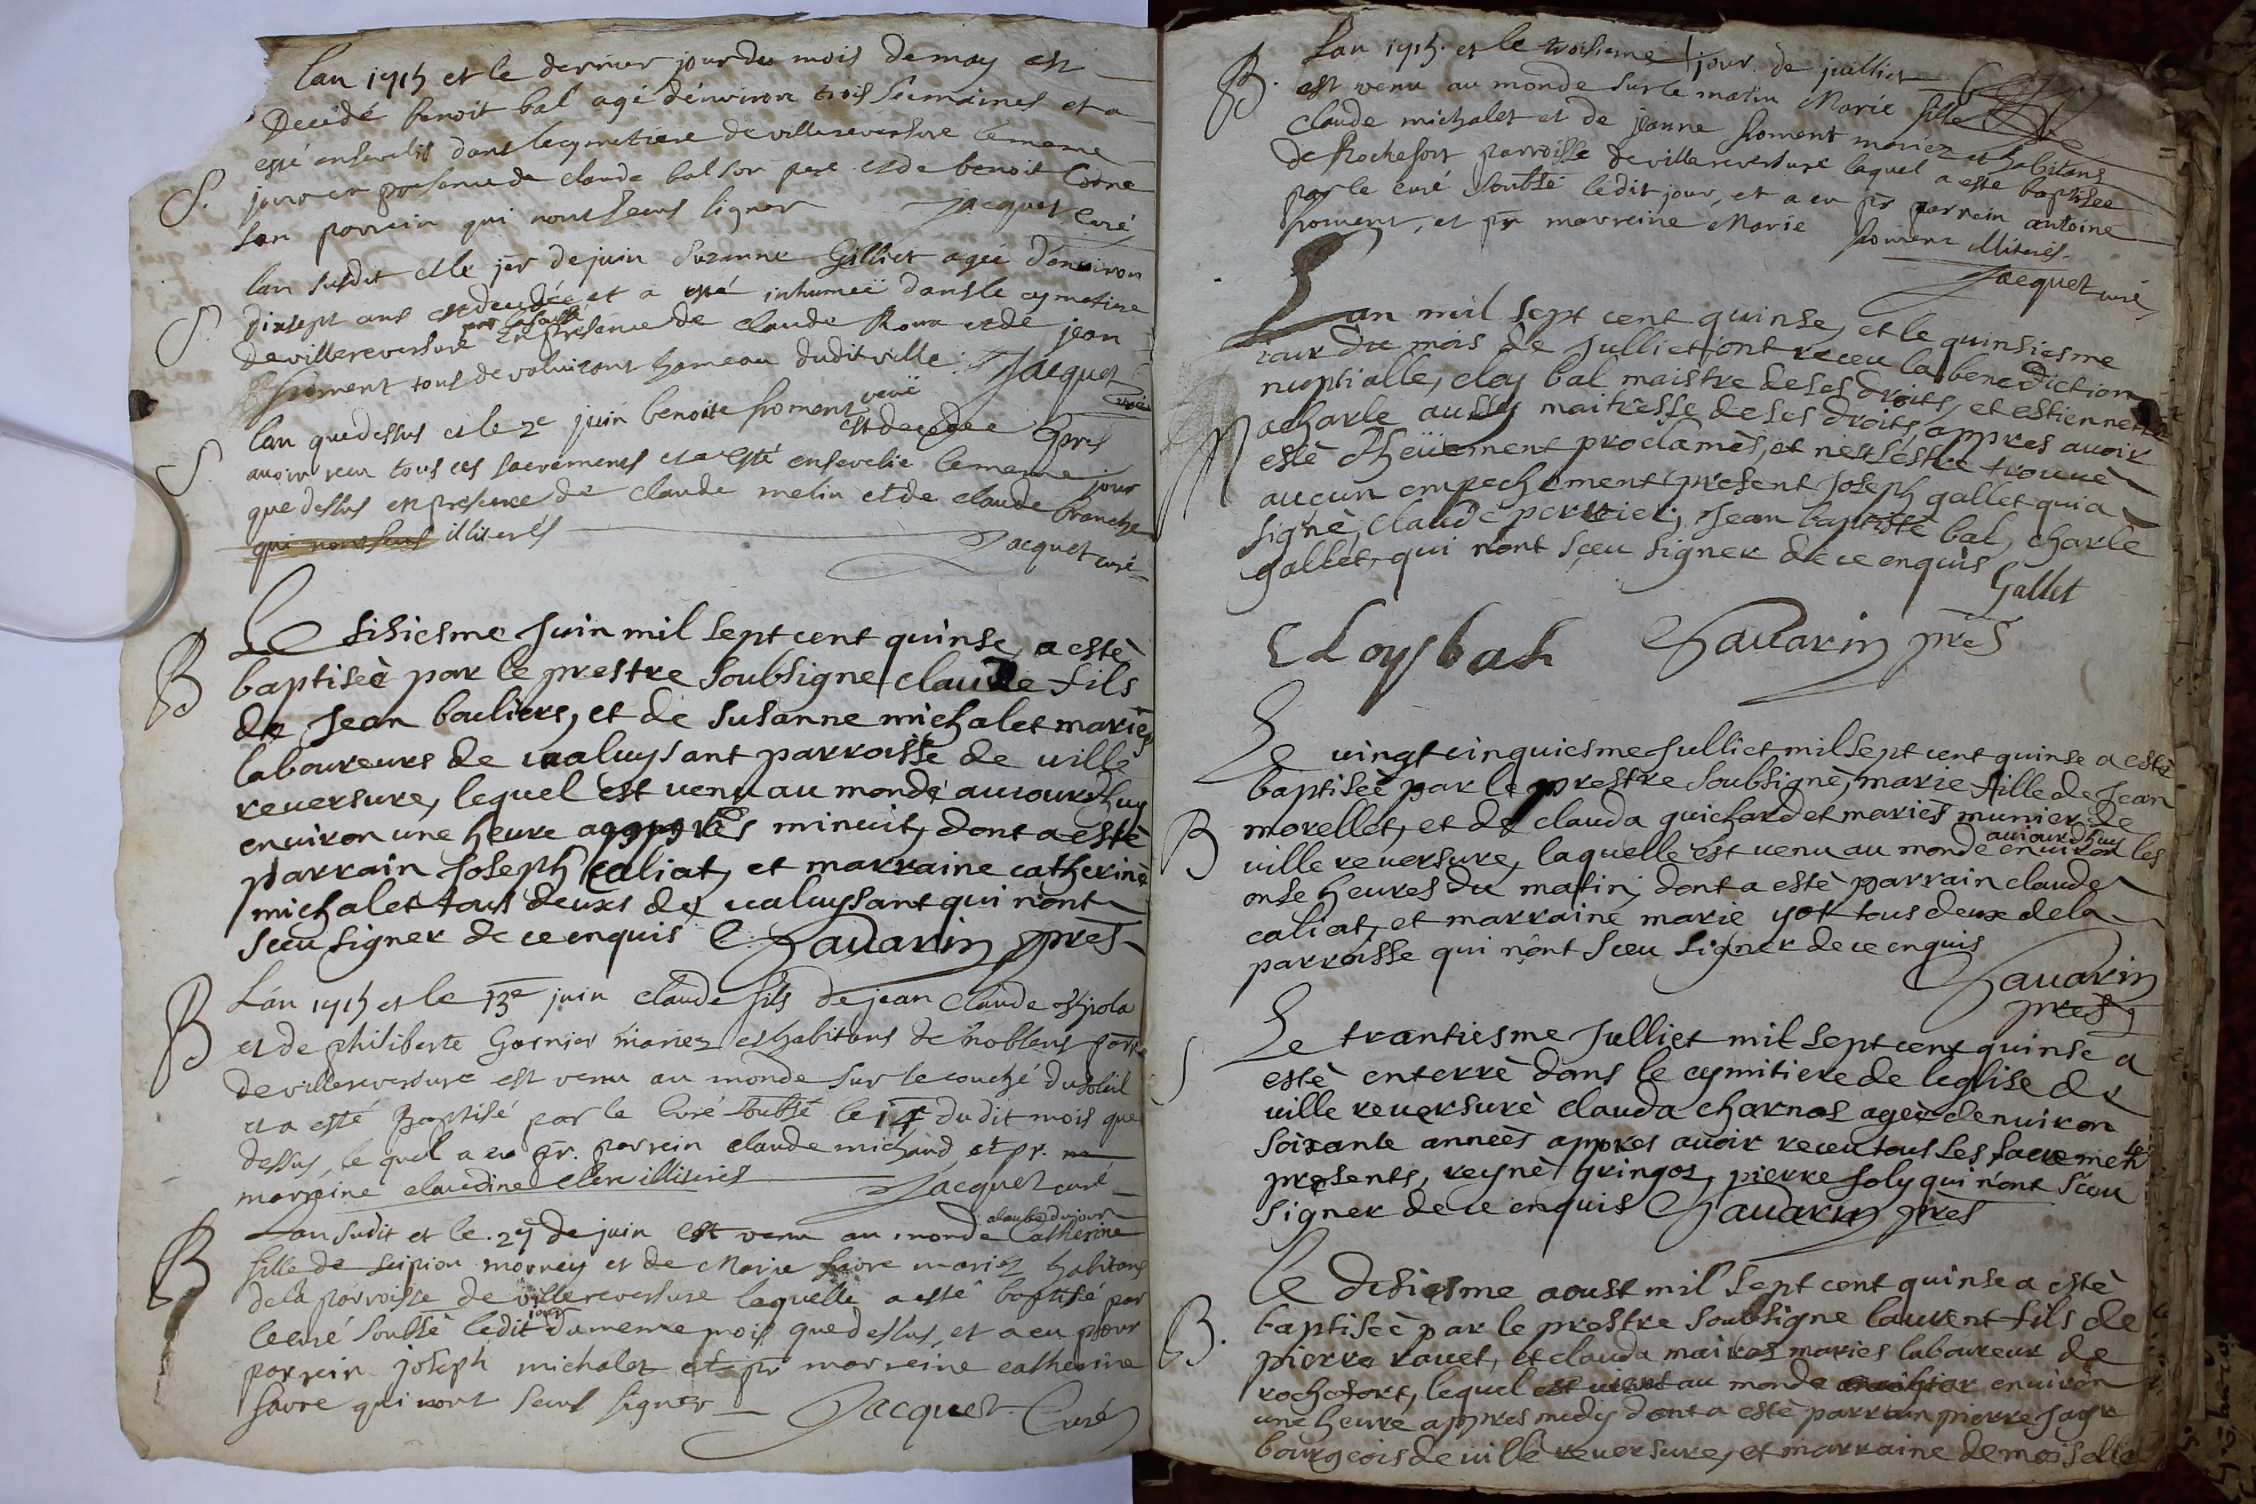 Lan 1715 et le dernier jour du mois de may est
Decédé benoit bal agé d'environ trois semaines et a
esté enseveli dans le cymetiere de villereversure le meme
S. jour en presence de claude bal son pere et de benoit Corne
son parrein qui nont seus signer Jacquet Curé
lan susdit et le jer de juin Suzanne Gilliet agée d'environ
dixsept ans est decedée et a esté inhumeë dans le cymetiere
S. de villereversure en presence de claude Roux et de jean
froment tous de valuisant hameau dudit ville. Jacquet
curé
lan que dessus et le 2e juin benoite froment veuë
est decedee apres
S. avoir receu tous ces sacrements et a esté ensevelie le meme jour
que dessus en presence de claude melin et de claude branche
qui nont seus illiterés Jacquet curé
Le sisiesme Juin mil sept cent quinse, a estè
B baptiseè par le prestre soubsigne claude fils
de Jean bouliers, et de susanne michalet mariès
laboureurs de ualuysant parroisse de uille
reuersure, lequel est uenu au monde auiourdhuy
enuiron une heure apprès minuit, dont a estè
parrain Joseph caliat, et marraine catherine
michalet tous deuxs de ualuysant qui nont
sceu signer de ce enquis Chauarin pres
B L'an 1715 et le 13e juin claude fils de jean claude
et de philiberte Garnier mariez et habitans de noblens parr
de villereversure est venu au monde sur le couché du soleil
et a esté baptisé par le curé soubsé le 14 du dit mois que
dessus, le quel a eu pr. parrein claude michaud, et pr.
marreine claudine clerc illiterés Jacquet curé
alaube du jour
B Lan sudit et le 27 de juin est venu au monde Catherine
fille de scipion mornay et de Marie favre mariez habitans
de la parroisse de villereversure laquelle a esté baptisé par
jour
le curé soubsè ledit du meme mois que dessus, et a eu pour
parrein joseph michalet et pr marreine catherine
favre qui nont seus signer Jacquet Curé
Lan 1715. et le troisieme jour de juilliet
B. est venu au monde sur le matin Marie fille
claude michalet et de jeanne froment mariez et habitans
de Rochefort parroisse de villereversure laquel a esté baptisée
par le curé soubsé ledit jour, et a eu pr parrein antoine
froment, et pr marreine Marie froment illiterés.
Jacquet curé
Lan mil sept cent quinse, et le quinsiesme
iour du mois de Julliet ont receu la benediction
nuptialle, eloy bal maistre de ses droits, et estiennette
M acharle aussy maitresse de ses droits, appres auoir
estè dheüement proclamès, et ne sestre trouuè
aucun empechement present Joseph gallet qui a
signè, claude perrier, Jean baptiste bal, charle
gallet, qui nont sçeu signer de ce enquis
Gallet
ELoys baL Chauarin pres
Le uingt cinquiesme Julliet mil sept cent quinse a estè
baptiseè par le prestre soubsignè, marie fille de Jean
B morellet, et de clauda guichardet mariès munier de
auiourdhuy
uille reuersure, laquelle est uenu au monde enuiron les
onse heures du matin, dont a estè parrain claude
caliat, et marraine marie yot tous deux de la
parroisse qui nont sceu signer de ce enquis
Chauarin
pres
Le trantiesme Julliet mil sept cent quinse a
S estè enterrè dans le cymitiere de leglise de
uille reuersurè clauda charnos ageè denuiron
soixante anneès appres auoir receu tous les sacrements
presents, reynè gringoz, pierre Joly qui nont sceu
signer de ce enquis Chauarin pres
Le disiesme aoust mil sept cent quinse a estè
B. baptiseè par le prestre soubsigne laurent fils de
pierre rauet, et clauda mairos maries laboureur de
rochefort, lequel est uenu au monde enuiron
une heure appres midy dont a estè parrain pierre Jayr
bourgeois de uille reuersure, et marraine demoiselle